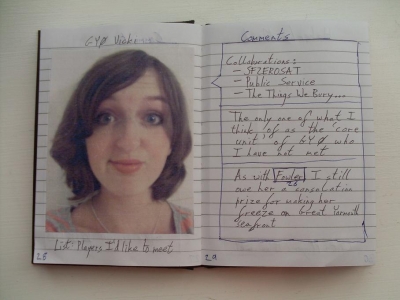 GYØ
List: Players I'd like to meet
28
Comments
Collaborations:
- SFZEROSAT
- Public Service
- The Things We Bury...
The only one of what I
think of as the core
unit of GYØ who
I have not met
As with Fowler I still
28
owe her a consolation
prize for making her
freeze on Great Yarmouth
seafront
29